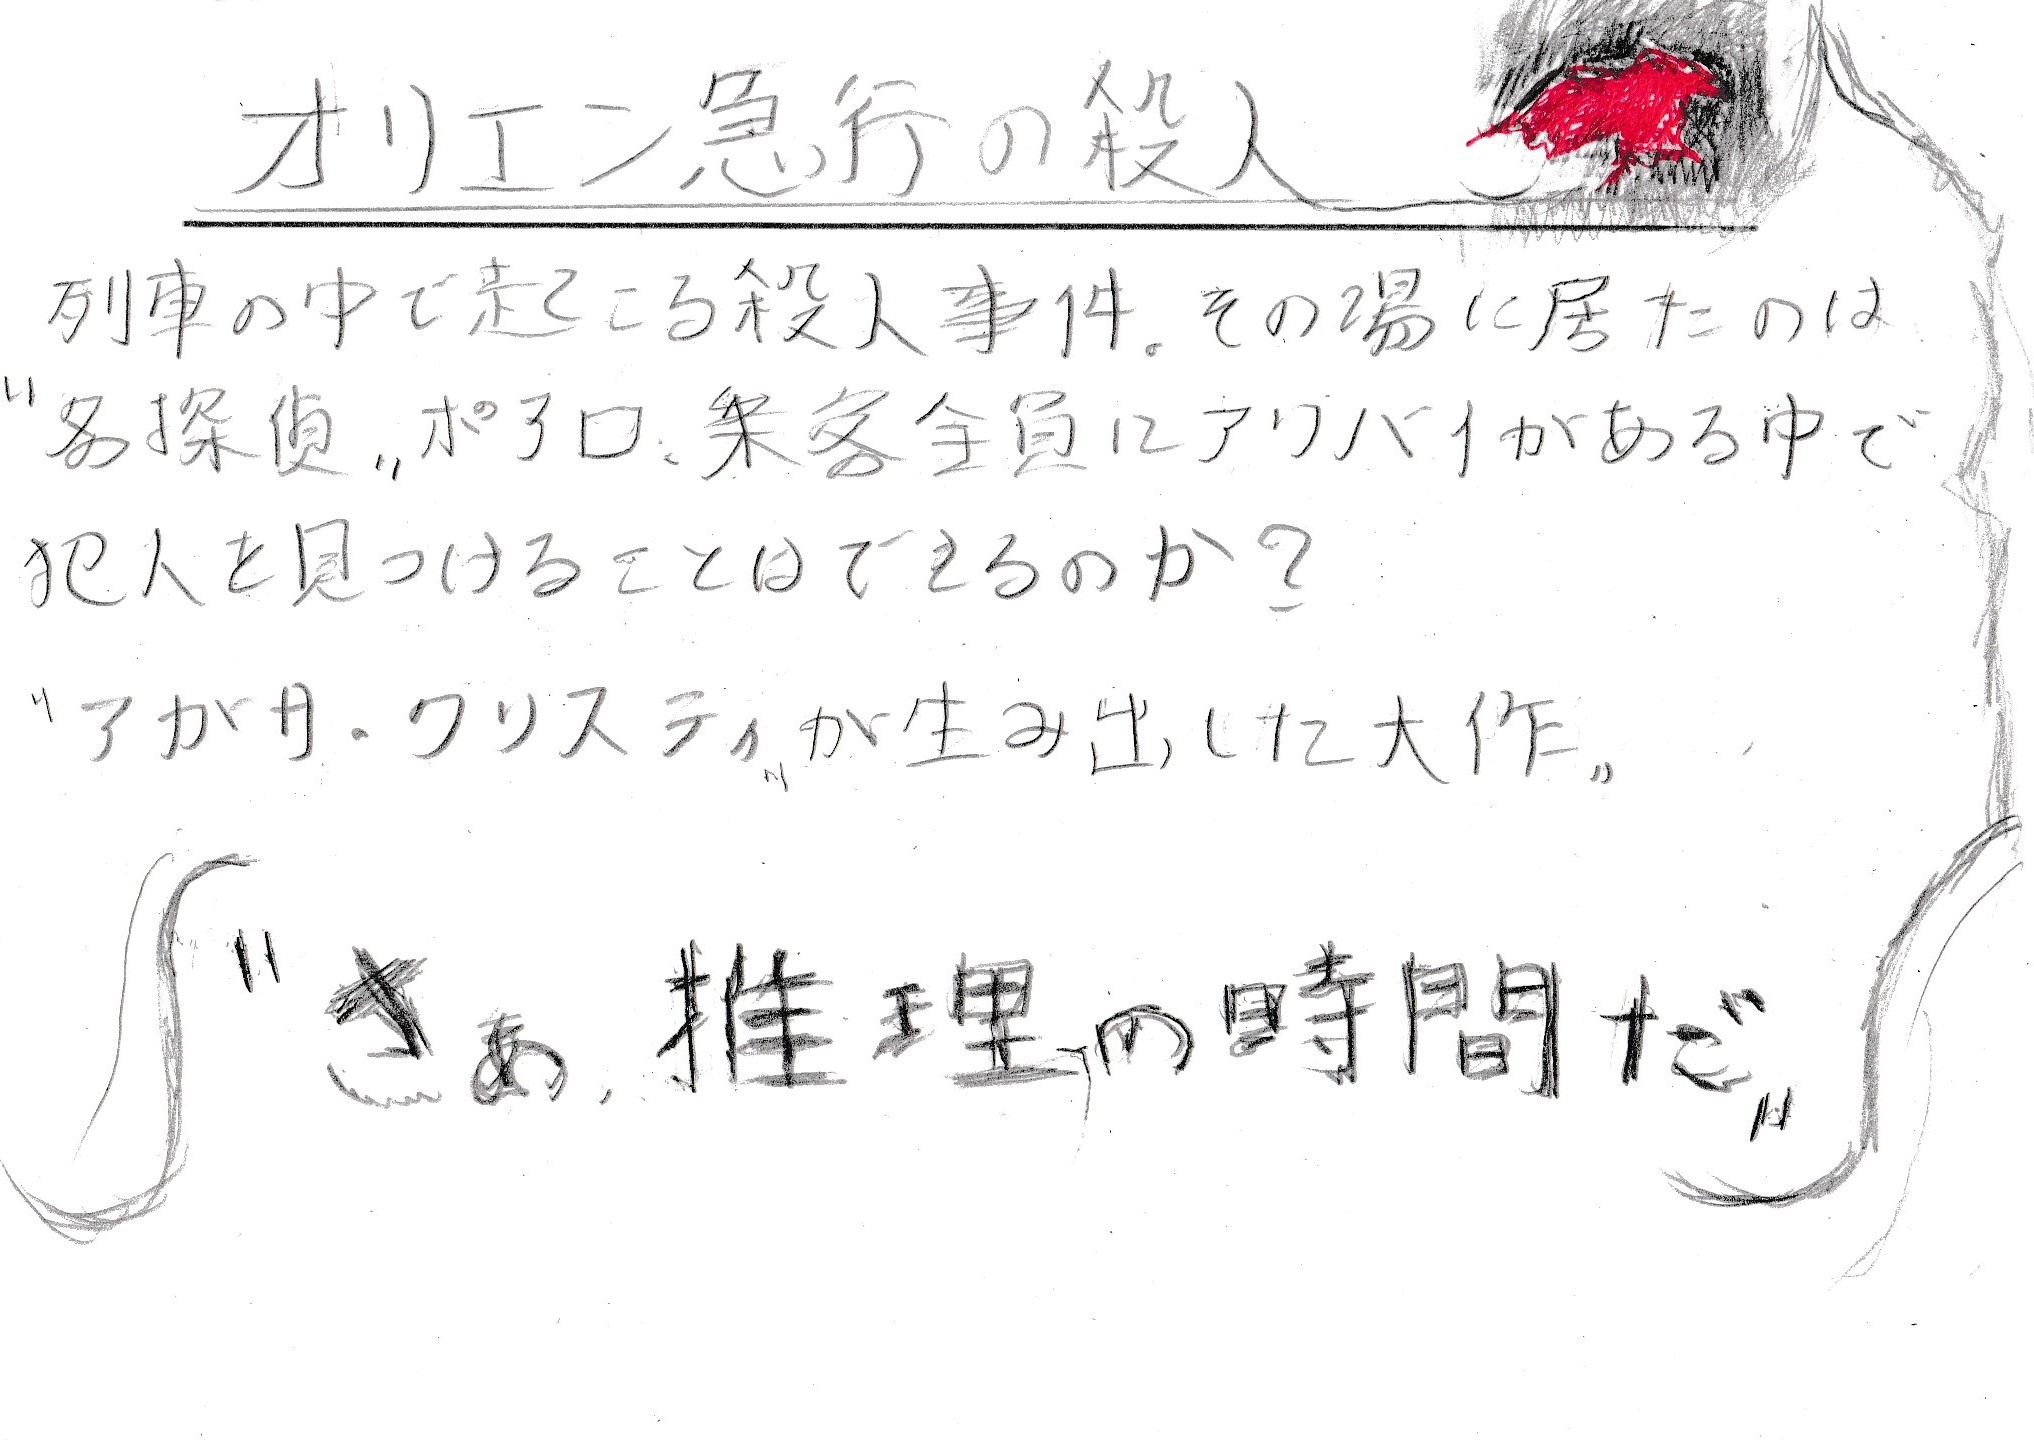 オリエン急行の殺人
列車の中で起こる殺人事件。その場に居たのは
"名探偵"ポアロ、乗客全員にアリバイがある中で
犯人を見つけることはできるのか?
"アガサ・クリスティ"が生み出した大作"
"さぁ、推理の時間だ"